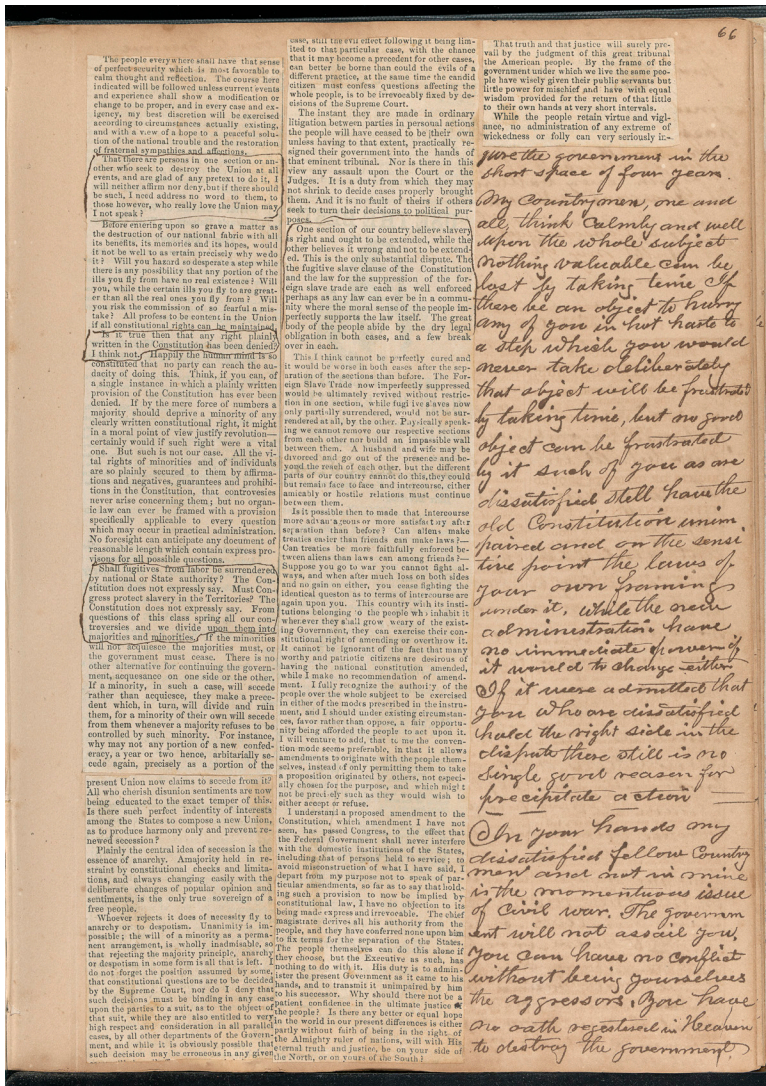 66
The people everywhere shall have that sense
of perfect security which is most favorable to
calm thought and reflection. The course here
indicated will be followed unless current events
and experience shall show a modification or
change to be proper, and in every case and ex-
igency, my best discretion will be exercised
according to circumstances actually existing,
and with a view of a hope to a peaceful solu-
tion of the national trouble and the restoration
of fraternal sympathies and affections.
That there are persons in one section or an-
other who seek to destroy the Union at all
events, and are glad of any pretext to do it, I
will neither affirm nor deny, but if there should
be such, I need address no word to them, to
those however, who really love the Union may
I not speak?
Before entering upon so grave a matter as
the destruction of our national fabric with all
its benefits, its memories and its hopes, would
it not be well to as certain precisely why we do
it? Will you hazard so desperate a step while
there is any possibility that any portion of the
ills you fly from have no real existence? Will
you, while the certain ills you fly to are great-
er than all the real ones you fly from? Will
you risk the commission of so fearful a mis-
take? All profess to be content in the Union
if all constitutional rights can be maintained.
Is it true then that any right plainly
written in the Constitution has been denied?
I think not. Happily the human mind is so
constituted that no party can reach the au-
dacity of doing this. Think, if you can, of
a single instance in which a plainly written
provision of the Constitution has ever been
denied. If by the mere force of numbers a
majority should deprive a minority of any
clearly written constitutional right, it might
in a moral point of view justify revolution—
certainly would if such right were a vital
one. But such is not our case. All the vi-
tal rights of minorities and of individuals
are so plainly secured to them by affirma-
tions and negatives, guarantees and prohibi-
tions in the Constitution, that controversies
never arise concerning them; but no organ-
ic law can ever be framed with a provision
specifically applicable to every question
which may occur in practical administration.
No foresight can anticipate any document of
reasonable length which contain express pro-
visons for all possible questions.
Shall fugitives from labor be surrendered
by national or State authority? The Con-
stitution does not expressly say. Must Con-
gress protect slavery in the Territories? The
Constitution does not expressly say. From
questions of this class spring all our con-
troversies and we divide upon them into
majorities and minorities. If the minorities
will not acquiesce the majorities must, or
the government must cease. There is no
other alternative for continuing the govern-
ment, acquesance on one side or the other.
If a minority, in such a case, will secede
rather than acquiesce, they make a prece-
dent which, in turn, will divide and ruin
them, for a minority of their own will secede
from them whenever a majority refuses to be
controlled by such minority. For instance,
why may not any portion of a new confed-
eracy, a year or two hence, arbitarially se-
cede again, precisely as a portion of the
present Union now claims to secede from it?
All who cherish disunion sentiments are now
being educated to the exact temper of this.
Is there such perfect indentity of interests
among the States to compose a new Union,
as to produce harmony only and prevent re-
newed secession?
Plainly the central idea of secession is the
essence of anarchy. Amajority held in re-
straint by constitutional checks and limita-
tions, and always changing easily with the
deliberate changes of popular opinion and
sentiments, is the only true sovereign of a
free people.
Whoever rejects it does of necessity fly to
anarchy or to despotism. Unanimity is im-
possible; the will of a minority as a perma-
nent arrangement, is wholly inadmisable, so
that rejecting the majority principle, anarchy
or despotism in some form is all that is left. I
do not forget the position assumed by some,
that constitutional questions are to be decided
by the Supreme Court, nor do I deny that
such decisions must be binding in any case
upon the parties to a suit, as to the object of
that suit, while they are also entitled to very
high respect and consideration in all parallel
cases, by all other departments of the Govern-
ment, and while it is obviously possible that
such decision may be erroneous in any given
case, still the evil effect following it being lim-
ited to that particular case, with the chance
that it may become a precedent for other cases,
can better be borne than could the evils of a
different practice, at the same time the candid
citizen must confess questions affecting the
whole people, is to be irrevocably fixed by de-
cisions of the Supreme Court.
The instant they are made in ordinary
litigation between parties in personal actions
the people will have ceased to be their own
unless having to that extent, practically re-
signed their government into the hands of
that eminent tribunal. Nor is there in this
view any assault upon the Court or the
Judges. It is a duty from which they may
not shrink to decide cases properly brought
them. And it is no fault of theirs if others
seek to turn their decisions to political pur-
poses.
One section of our country believe slavery
is right and ought to be extended, while the
other believes it wrong and not to be extend-
ed. This is the only substantial dispute. The
fugitive slave clause of the Constitution
and the law for the suppression of the for-
eign slave trade are each as well enforced
perhaps as any law can ever be in a commu-
nity where the moral sense of the people im-
perfectly supports the law itself. The great
body of the people abide by the dry legal
obligation in both cases, and a few break
over in each.
This I think cannot be perfectly cured and
it would be worse in both cases after the sep-
aration of the sections than before. The For-
eign Slave Trade now imperfectly suppressed
would be ultimately revived without restric-
tion in one section, while fugitive slaves now
only partially surrendered, would not be sur-
rendered at all, by the other. Physically speak-
ing we cannot remove our respective sections
from each other nor build an impassible wall
between them. A husband and wife may be
divorced and go out of the presence and be-
yond the reach of each other, but the different
parts of our country cannot do this, they could
but remain face to face and intercourse, either
amicably or hostile relations must continue
between them.
Is it possible then to made that intercourse
more advantageous or more satisfactory after
separation than before? Can aliens make
treaties easier than friends can make laws?—
Can treaties be more faithfully enforced be-
tween aliens than laws can among friends?—
Suppose you go to war you cannot fight al-
ways, and when after much loss on both sides
and no gain on either, you cease fighting the
identical queston as to terms of intercourse are
again upon you. This country with its insti-
tutions belonging to the people who inhabit it
wherever they shall grow weary of the exist-
ing Government, they can exercise their con-
stitutional right of amending or overthrow it.
It cannot be ignorant of the fact that many
worthy and patriotic citizens are desirous of
having the national constitution amended,
while I make no recommendation of amend-
ment. I fully recognize the authority of the
people over the whole subject to be exercised
in either of the modes prescribed in the instru-
ment, and I should under existing circumstan-
ces, favor rather than oppose, a fair opportu-
nity being afforded the people to act upon it.
I will venture to add, that to me the conven-
tion mode seems preferable, in that it allows
amendments to originate with the people them-
selves, instead of only permitting them to take
a proposition originated by others, not especi-
ally chosen for the purpose, and which might
not be precisely such as they would wish to
either accept or refuse.
I understand a proposed amendment to the
Constitution, which amendment I have not
seen, has passed Congress, to the effect that
the Federal Government shall never interfere
with the domestic institutions of the States,
including that of persons held to service; to
avoid misconstruction of what I have said, I
depart from my purpose not to speak of par-
ticular amendments, so far as to say that hold-
ing such a provision to now be implied by
constitutional law, I have no objection to its
being made express and irrevocable. The chief
magistrate derives all his authority from the
people, and they have conferred none upon him
to fix terms for the separation of the States.
The people themselves can do this alone if
they choose, but the Executive as such, has
nothing to do with it. His duty is to admin-
ister the present Government as it came to his
hands, and to transmit it unimpaired by him
to his successor. Why should there not be a
patient confidence in the ultimate justice of
the people? Is there any better or equal hope
in the world in our present differences is either
partly without faith of being in the right, of
the Almighty ruler of nations, will with His
eternal truth and justice, be on your side of
the North, or on yours of the South?
That truth and that justice will surely pre-
vail by the judgment of this great tribunal
the American people. By the frame of the
government under which we live the same peo-
ple have wisely given their public servants but
little power for mischief and have with equal
wisdom provided for the return of that little
to their own hands at very short intervals.
While the people retain virtue and vigil-
ance, no administration of any extreme of
wickedness or folly can very seriously in-
jure the government in the
short space of four years.
My Countrymen, one and
all, think Calmly and well
upon the whole subject
nothing valuable can be
lost by taking time If
there be an object to hurry
any of you in hot haste to
a step which you would
never take deliberately
that object will be frustrated
by taking time, but no good
object can be frustrated
by it such of you as are
dissatisfied still have the
old Constitution unim
paired and on the sensi
tive point the laws of
your own framing
under it, while the new
administration have
no immediate power if
it would to change either
If it were admitted that
you who are dissatisfied
hold the right side in the
dispute there still is no
single good reason for
precipitate action
In your hands my
dissatisfied fellow Country
men and not in mine
is the momentuous issue
of Civil war. The governm
ent will not assail you,
you can have no conflict
without being yourselves
the aggressors. You have
no oath registered in Heaven
to destroy the government